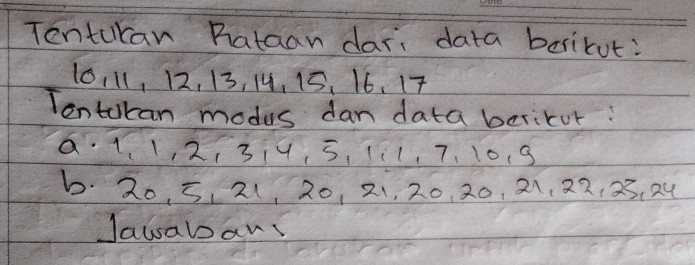 Tentukan Rataan dari data berikut:
10, 11, 12, 13, 14, 15, 16, 17
Tentukan modus dan data berikut:
a. 1, 1, 2, 3, 4, 5, 1, 1, 7, 10, 9
b. 20, 5, 21, 20, 21, 20, 20, 21, 22, 23, 24
Jawaban: